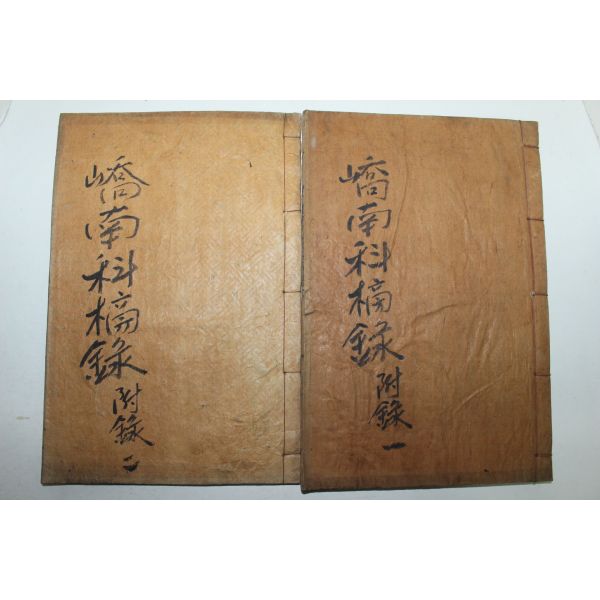 嶠南科榜錄
附錄 一
嶠南科榜錄
附錄 二